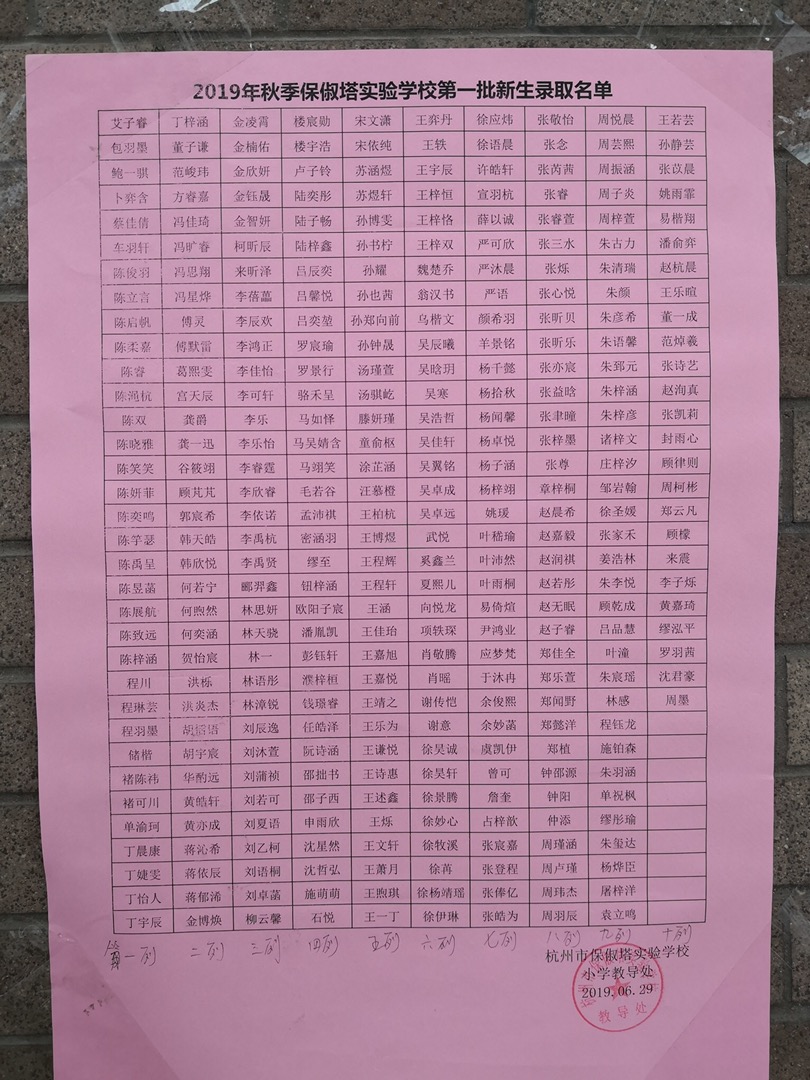 2019年秋季保俶塔实验学校第一批新生录取名单
艾子睿 丁梓涵 金凌霄 楼宸勋 宋文潇 王弈丹 徐应炜 张敬怡 周悦晨 王若芸
包羽墨 董子谦 金楠佑 楼宇浩 宋依纯 王轶 徐语晨 张念 周芸熙 孙静芸
鲍一骐 范峻玮 金欣妍 卢子铃 苏涵煜 王宇辰 许皓轩 张芮茜 周振涵 张苡晨
卜弈含 方睿嘉 金钰晟 陆奕彤 苏煜轩 王梓恒 宣羽杭 张睿 周子炎 姚雨霏
蔡佳倩 冯佳琦 金智妍 陆子畅 孙博雯 王梓恪 薛以诚 张睿萱 周梓萱 易楷翔
车羽轩 冯旷睿 柯昕辰 陆梓鑫 孙书柠 王梓双 严可欣 张三水 朱古力 潘俞弈
陈俊羽 冯思翔 来昕泽 吕辰奕 孙耀 魏楚乔 严沐晨 张烁 朱清瑞 赵杭晨
陈立言 冯星烨 李蓓蕌 吕馨悦 孙也茜 翁汉书 严语 张心悦 朱颜 王乐暄
陈启帆 傅灵 李辰欢 吕奕堃 孙郑向前 乌楷文 颜希羽 张昕贝 朱彦希 董一成
陈柔嘉 傅默雷 李鸿正 罗宸瑜 孙钟晟 吴辰曦 羊景铭 张昕乐 朱语馨 范焯羲
陈睿 葛熙雯 李佳怡 罗景行 汤瑾萱 吴晗玥 杨千懿 张亦宸 朱郅元 张诗艺
陈渑杭 宫天辰 李可轩 骆禾呈 汤骐屹 吴寒 杨拾秋 张益晗 朱梓涵 赵洵真
陈双 龚爵 李乐 马如怿 滕妍瑾 吴浩哲 杨闻馨 张聿曈 朱梓彦 张凯莉
陈晓雅 龚一迅 李乐怡 马吴婧含 童俞枢 吴佳轩 杨卓悦 张梓墨 诸梓文 封雨心
陈笑笑 谷筱翊 李睿霆 马翊笑 涂芷涵 吴翼铭 杨子涵 张尊 庄梓汐 顾律则
陈妍菲 顾芃芃 李欣睿 毛若谷 汪慕橙 吴卓成 杨梓翊 章梓桐 邹岩翰 周柯彬
陈奕鸣 郭宸希 李依诺 孟沛祺 王柏杭 吴卓远 姚瑗 赵晨希 徐圣媛 郑云凡
陈竽瑟 韩天皓 李禹杭 密涵羽 王博煜 武悦 叶嵇瑜 赵嘉毅 张家禾 顾檬
陈禹呈 韩欣悦 李禹贤 缪至 王程辉 奚鑫兰 叶沛然 赵润祺 姜浩林 来震
陈昱菡 何若宁 郦羿鑫 钮梓涵 王程轩 夏熙儿 叶雨桐 赵若彤 朱李悦 李子烁
陈展航 何煦然 林思妍 欧阳子宸 王涵 向悦龙 易倚煊 赵无眠 顾乾成 黄嘉琦
陈致远 何奕涵 林天骁 潘胤凯 王佳珆 项轶琛 尹鸿业 赵子睿 吕品慧 缪泓平
陈梓涵 贺怡宸 林一 彭钰轩 王嘉旭 肖敬腾 应梦梵 郑佳全 叶潼 罗羽茜
程川 洪栎 林语彤 濮梓桓 王嘉悦 肖瑶 于沐冉 郑乐萱 朱宸瑶 沈君豪
程琳芸 洪炎杰 林漳锐 钱璟睿 王靖之 谢传恺 余俊熙 郑闻野 林感 周墨
程羽墨 胡梧语 刘辰逸 任皓泽 王乐为 谢意 余妙菡 郑懿洋 程钰龙
储楷 胡宇宸 刘沐萱 阮诗涵 王谦悦 徐昊诚 虞凯伊 郑植 施铂森
褚陈祎 华酌远 刘蒲祯 邵拙书 王诗惠 徐昊轩 曾可 钟邵源 朱羽涵
褚可川 黄皓轩 刘若可 邵子西 王述鑫 徐景腾 詹奎 钟阳 单祝枫
单渝珂 黄亦成 刘夏语 申雨欣 王烁 徐妙心 占梓歆 仲添 缪彤瑜
丁晨康 蒋沁希 刘乙柯 沈星然 王文轩 徐牧溪 张宸嘉 周瑾涵 朱玺达
丁婕雯 蒋依辰 刘语桐 沈哲弘 王萧月 徐苒 张登程 周卢瑾 杨烨臣
丁怡人 蒋郁浠 刘卓菡 施萌萌 王煦琪 徐杨靖瑶 张俸亿 周玮杰 屠梓洋
丁宇辰 金博焕 柳云馨 石悦 王一丁 徐伊琳 张皓为 周羽辰 袁立鸣
第一列 二列 三列 四列 五列 六列 七列 八列 九列 十列
杭州市保俶塔实验学校
小学教导处
2019.06.29
教导处